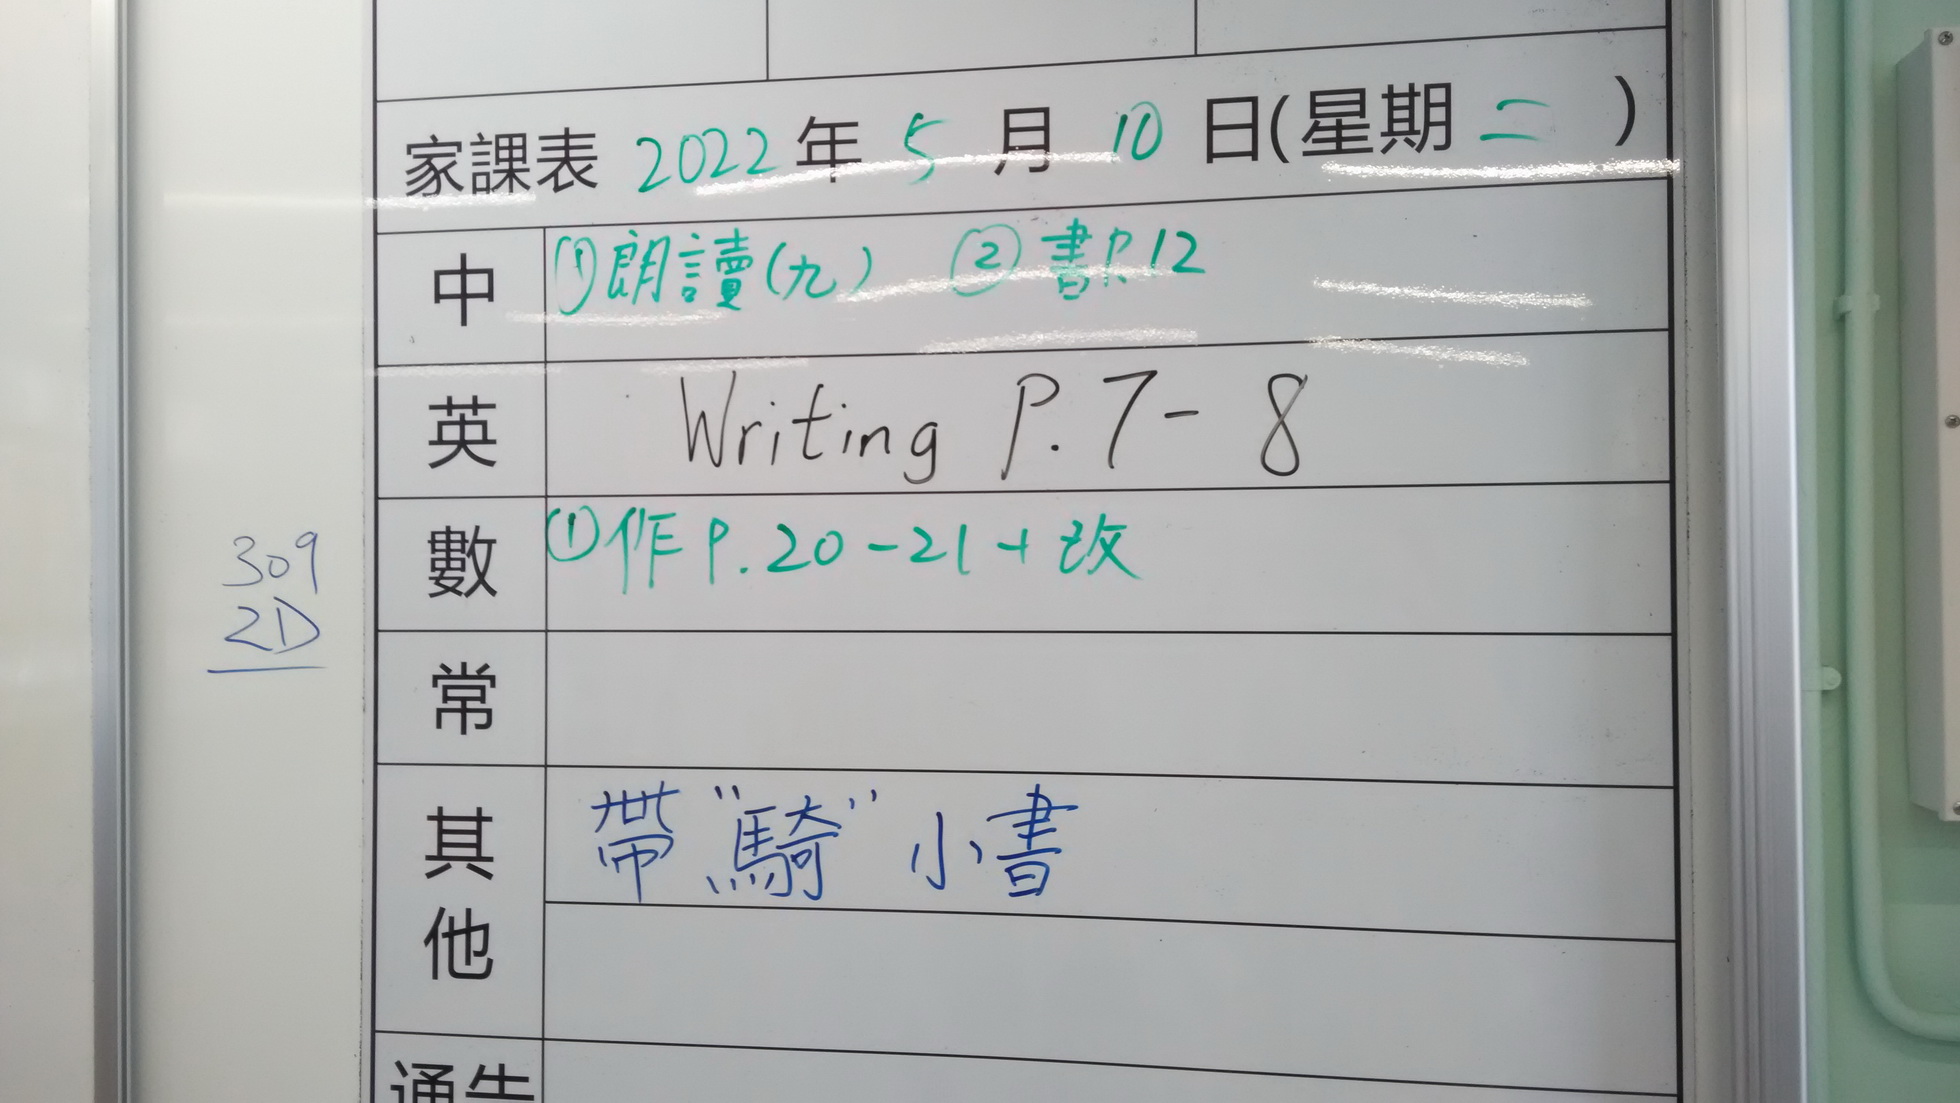 家課表 2022 年 5 月 10 日(星期 二 )
中 ①朗讀(九) ②書P.12
英 Writing P.7-8
數 ①作P.20-21+改
309
2D
常
其他 帶"騎"小書
通告